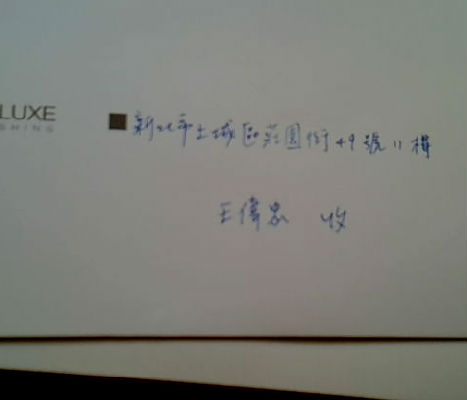 LUXE
SHING
新北市土城區莊園街49號11樓
王偉忠 收